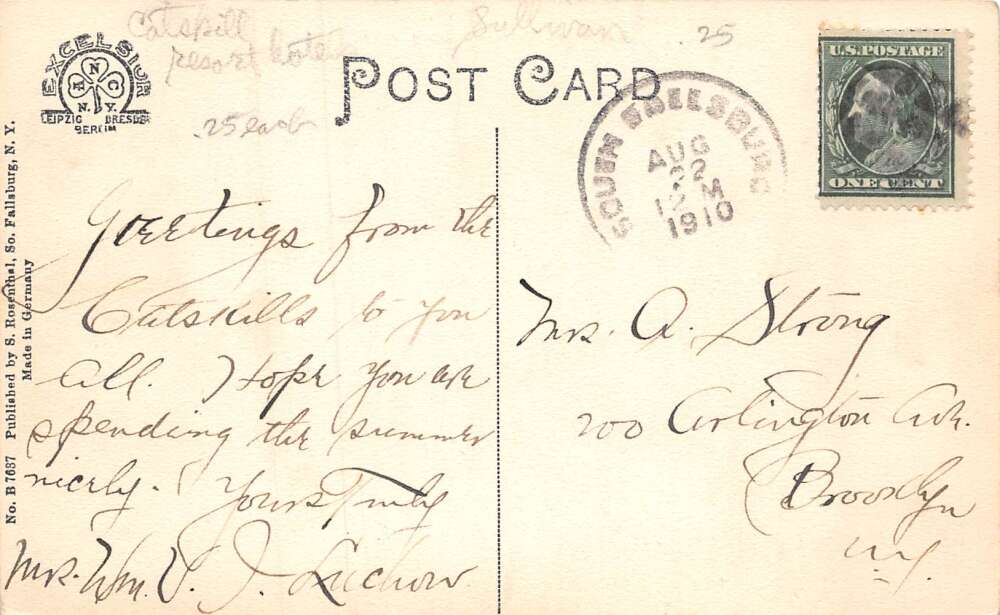 Catskill
resort hotels
Sullivan
.25
.25 each
EXCELSIOR
N
N.Y.
LEIPZIG DRESDEN
BERLIN
POST CARD
U.S. POSTAGE
ONE CENT
SOUTH
AUG
22
12 M
1910
No. B 7687 Published by S. Rosenthal, So. Fallsburg, N. Y.
Made in Germany
Greetings from the
Catskills to you
all. Hope you are
spending the summer
nicely. Yours Truly
Mrs. Wm. V. J. Luchow
Mrs. A. Strong
200 Arlington Ave.
Brooklyn
N.Y.